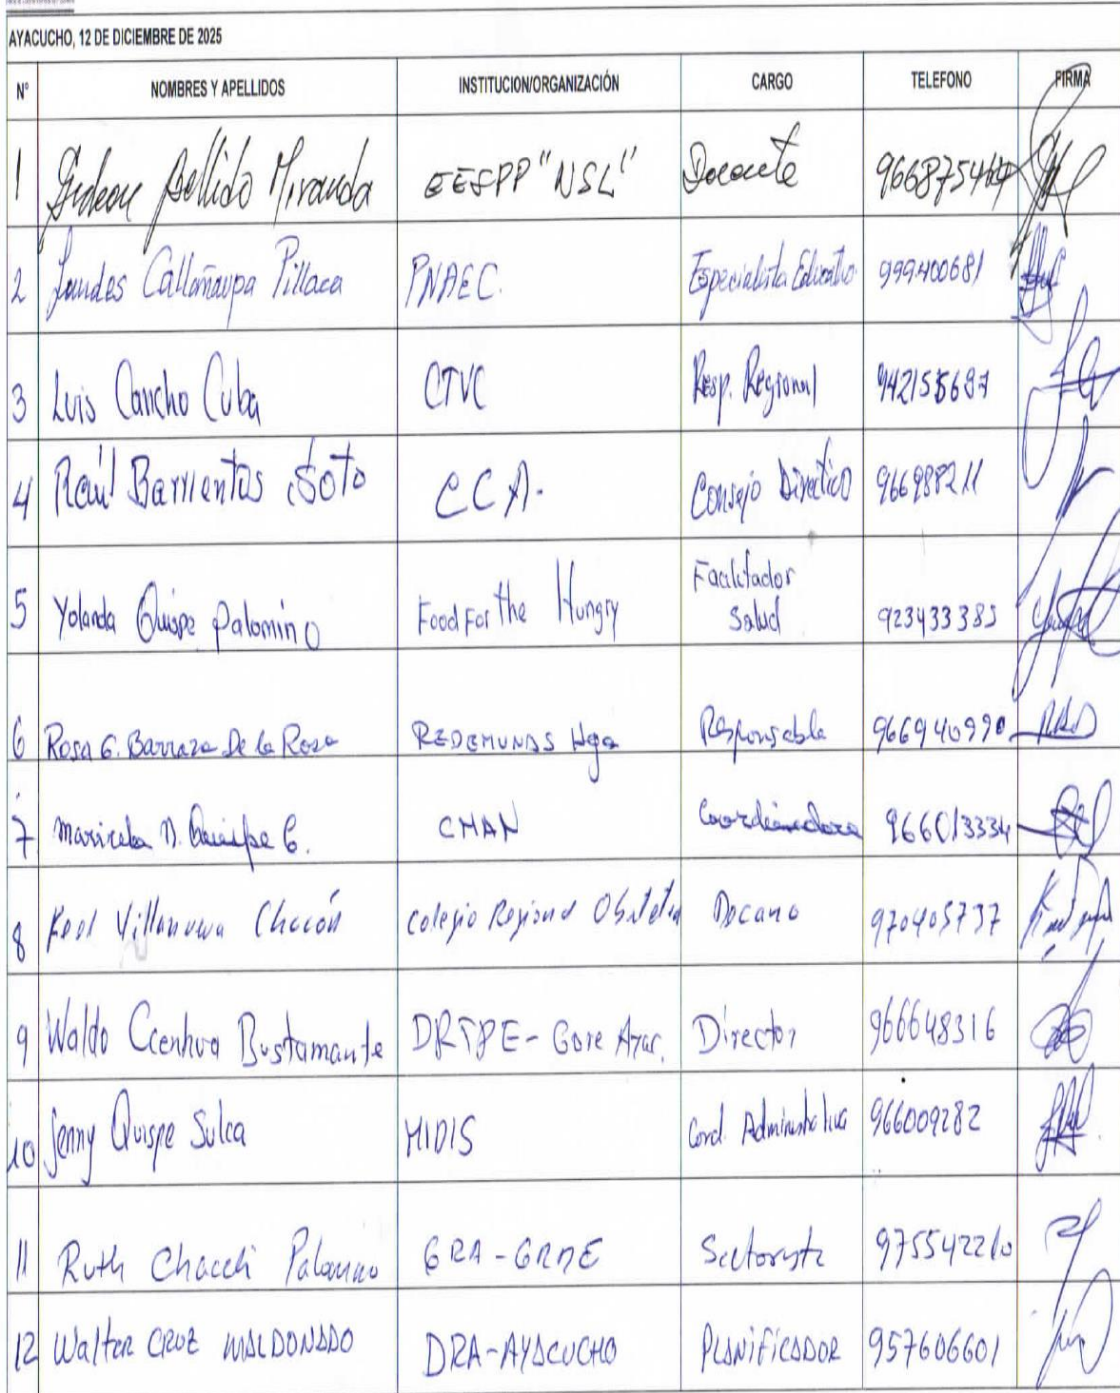 AYACUCHO, 12 DE DICIEMBRE DE 2025
N° NOMBRES Y APELLIDOS INSTITUCION/ORGANIZACIÓN CARGO TELEFONO FIRMA
1 Gedeon Bellido Miranda EESPP "NSL" Docente
2 Lourdes Callañaupa Pillaca PNAEC. Especialista Educativo 999400681
3 Luis Cancho Cuba CTVC Resp. Regional 942155687
4 Raúl Barrientos Soto CCA. Consejo Directivo 966988211
5 Yolanda Quispe Palomino Food For the Hungry Facilitador
Salud 923433383
6 Rosa G. Barraza De la Rosa REDEMUNAS Hga Responsable 966940990
7 Maricela N. Quispe C. CMAN Coordinadora 966013334
8 Villanueva Chacón Colegio Regional Decano 970405737
9 Waldo Ccenhua Bustamante DRTPE - Gore Director 966648316
10 Jenny Quispe Sulca MIDIS Cord. Administrativa 966009282
11 Ruth Palomino GRA - Sectorista 975542210
12 Walter CRUZ MALDONADO DRA-AYACUCHO PLANIFICADOR 957606601